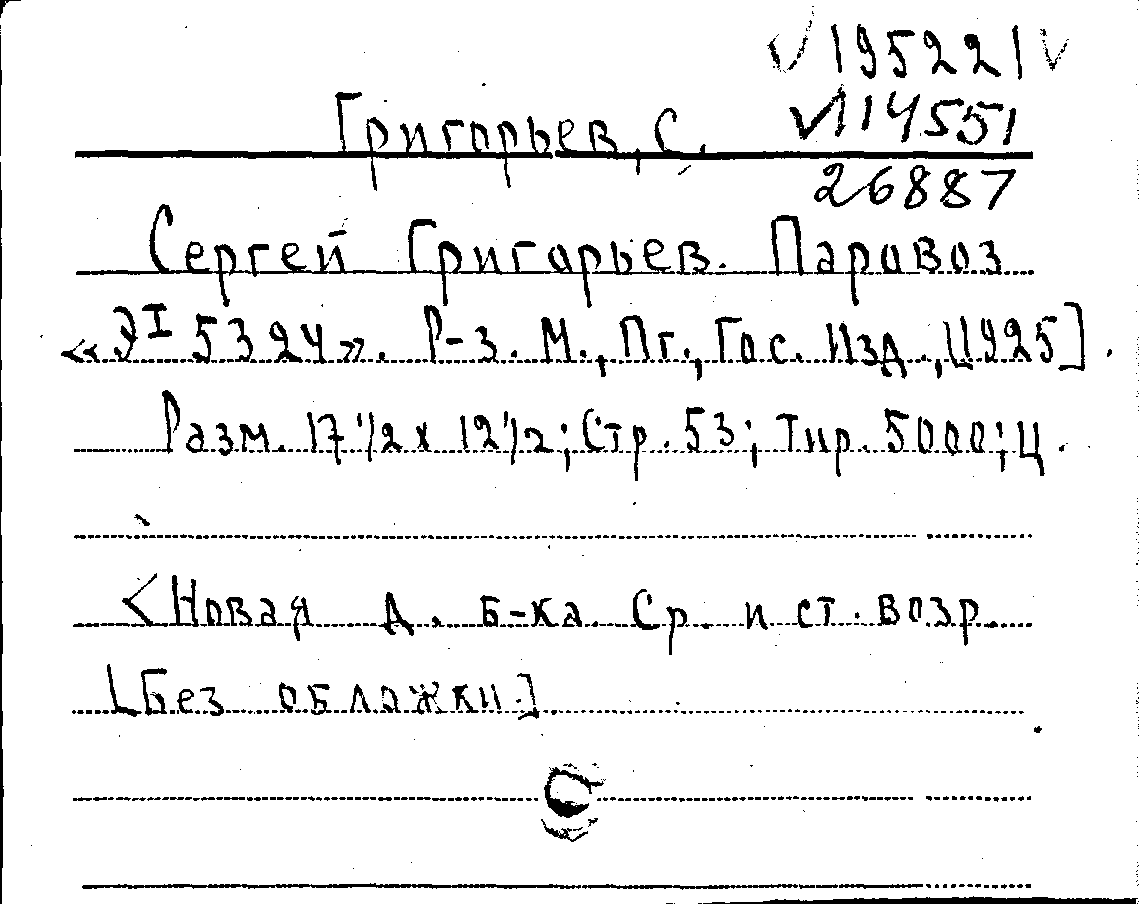 √ 195221 √
Григорьев, С. √114551
26887
Сергей Григорьев. Паровоз
«Эᴵ 5324». Р-з. М., Пг., Гос. Изд., [1925].
Разм. 17 1/2 х 12 1/2; Стр. 53; Тир. 5000; Ц.
<Новая д. б-ка. Ср. и ст. возр.
[Без обложки.].